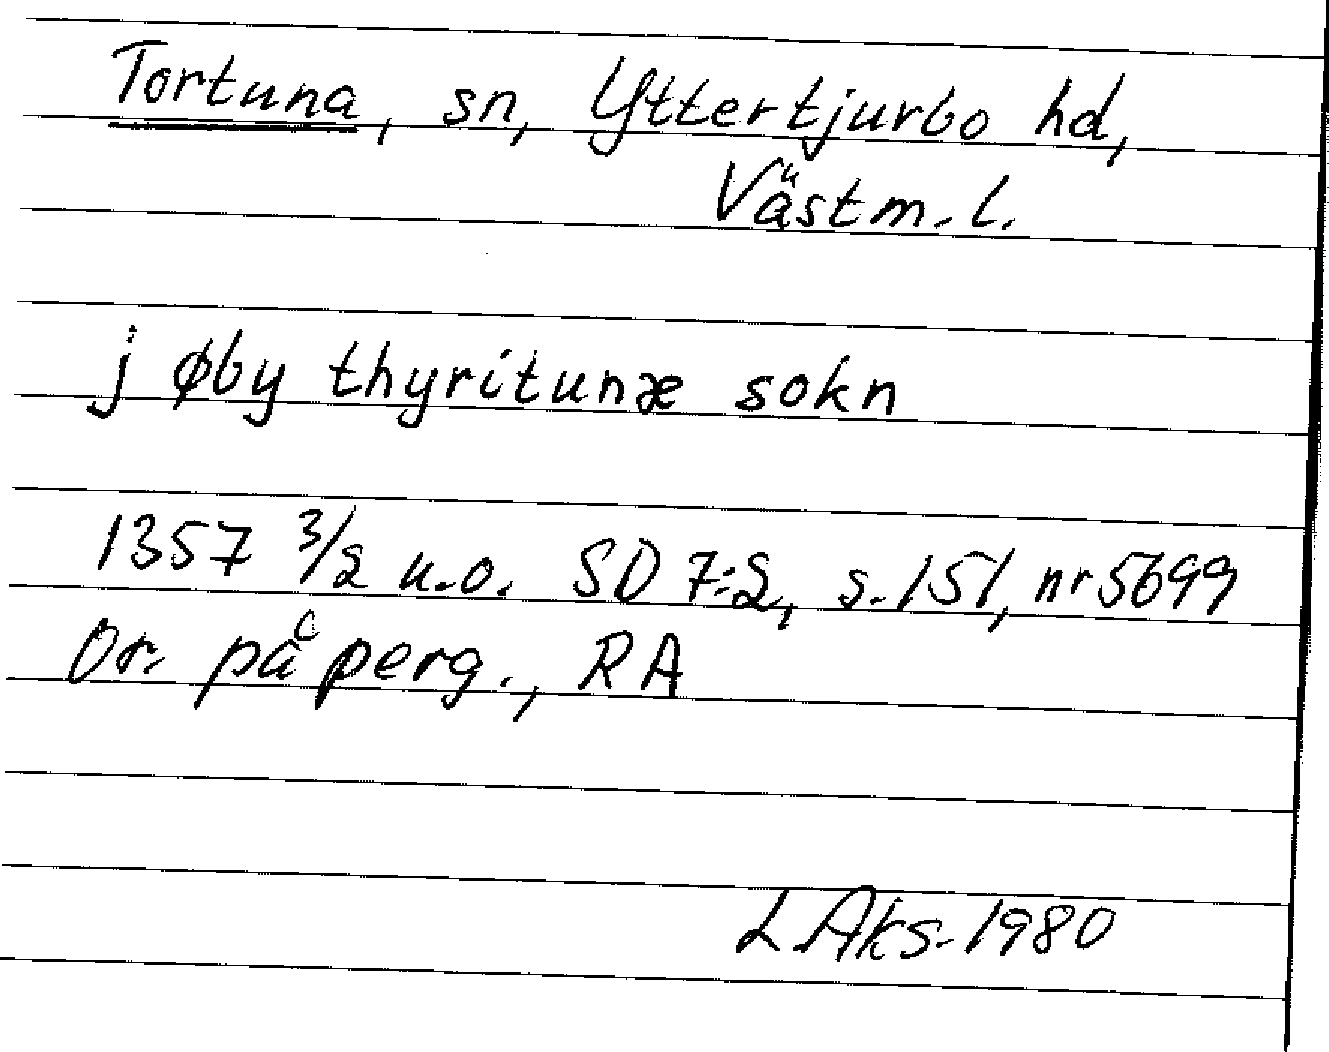 Tortuna, sn, Yttertjurbo hd,
Västm. l.
j øby thyritunæ sokn
1357 3/2 u.o. SD 7:2, s. 151, nr 5699
Or. på perg., RA
L Aks. 1980